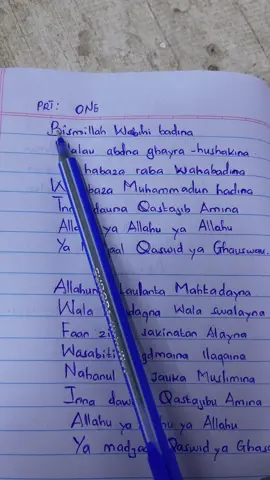 PRT: ONE
Bismillah Wabihi badina
walau abdna ghayra-hushakina
habaza raba Wahabadina
W baza Muhammadun hadina
Inn dauna Qastajib Amina
Alla ya Allahu ya Allahu
Ya aal Qaswid ya Ghauswau
Allahum Laulanta Mahtadayna
Wala dagna Wala swalayna
Faan zi sakinatan Alayna
Wasabiti gdmaina Ilaqaina
Nahanul Jauka Muslimina
Inna daw Qastajibu Amina
Allahu ya hu ya Allahu
Ya madjad Qaswid ya Ghaus